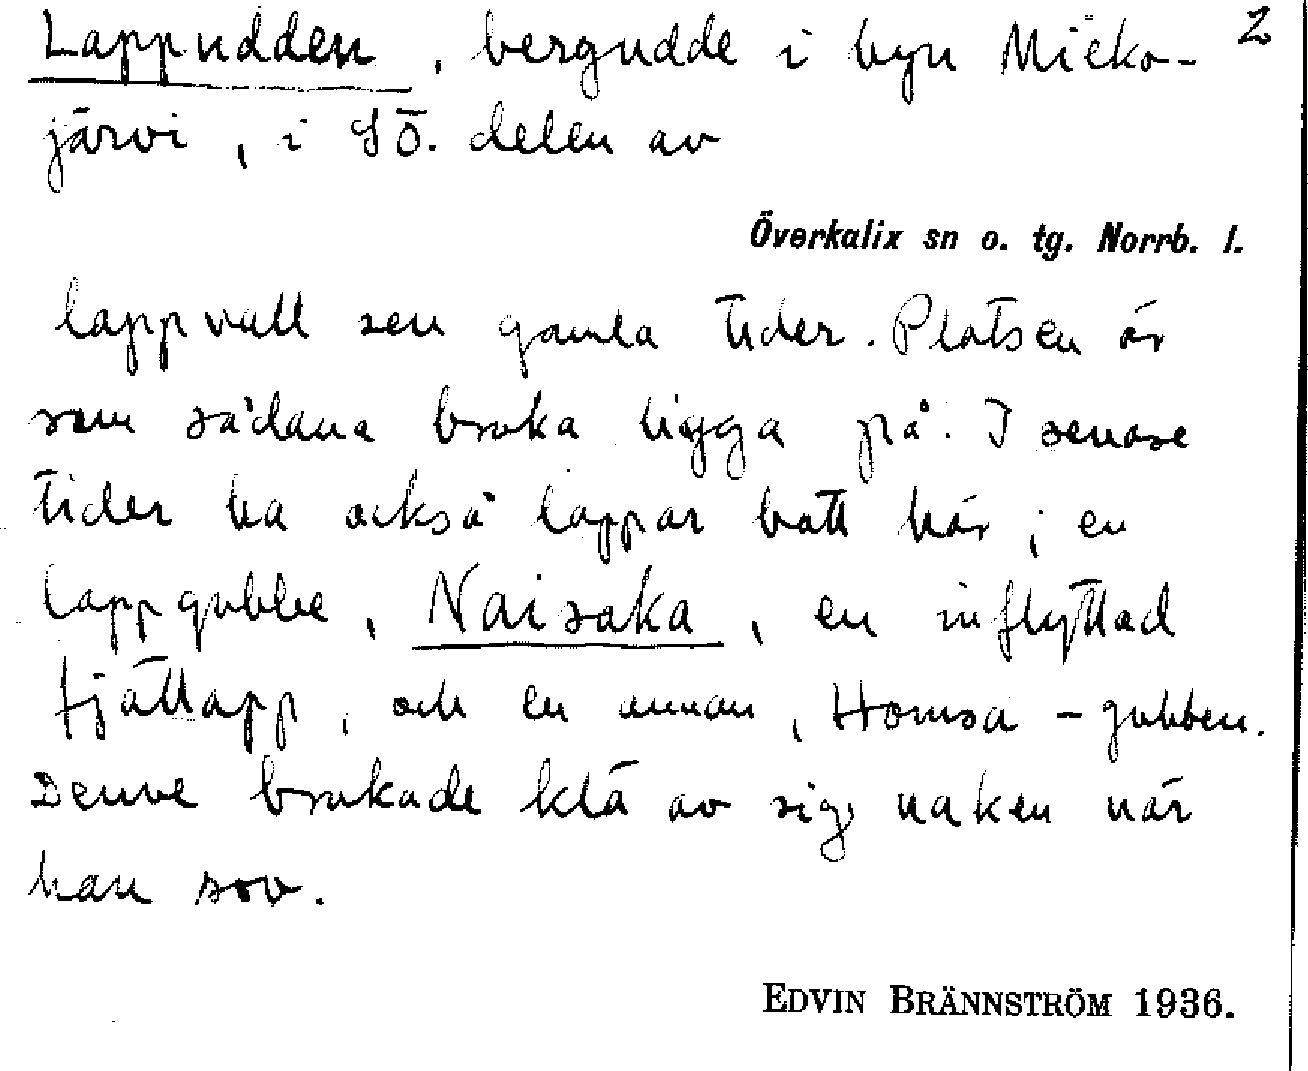 Lappudden, bergudde i byn Mieko- 2
järvi, i SÖ. delen av
Överkalix sn o. tg. Norrb. l.
lappvall sen gamla tider. Platsen är
som sådana bruka ligga på. I senare
tider ha också lappar bott här; en
lappgubbe, Naisaka, en inflyttad
fjällapp, och en annan, Homsa-gubben.
Denne brukade klä av sig naken när
han sov.
EDVIN BRÄNNSTRÖM 1936.